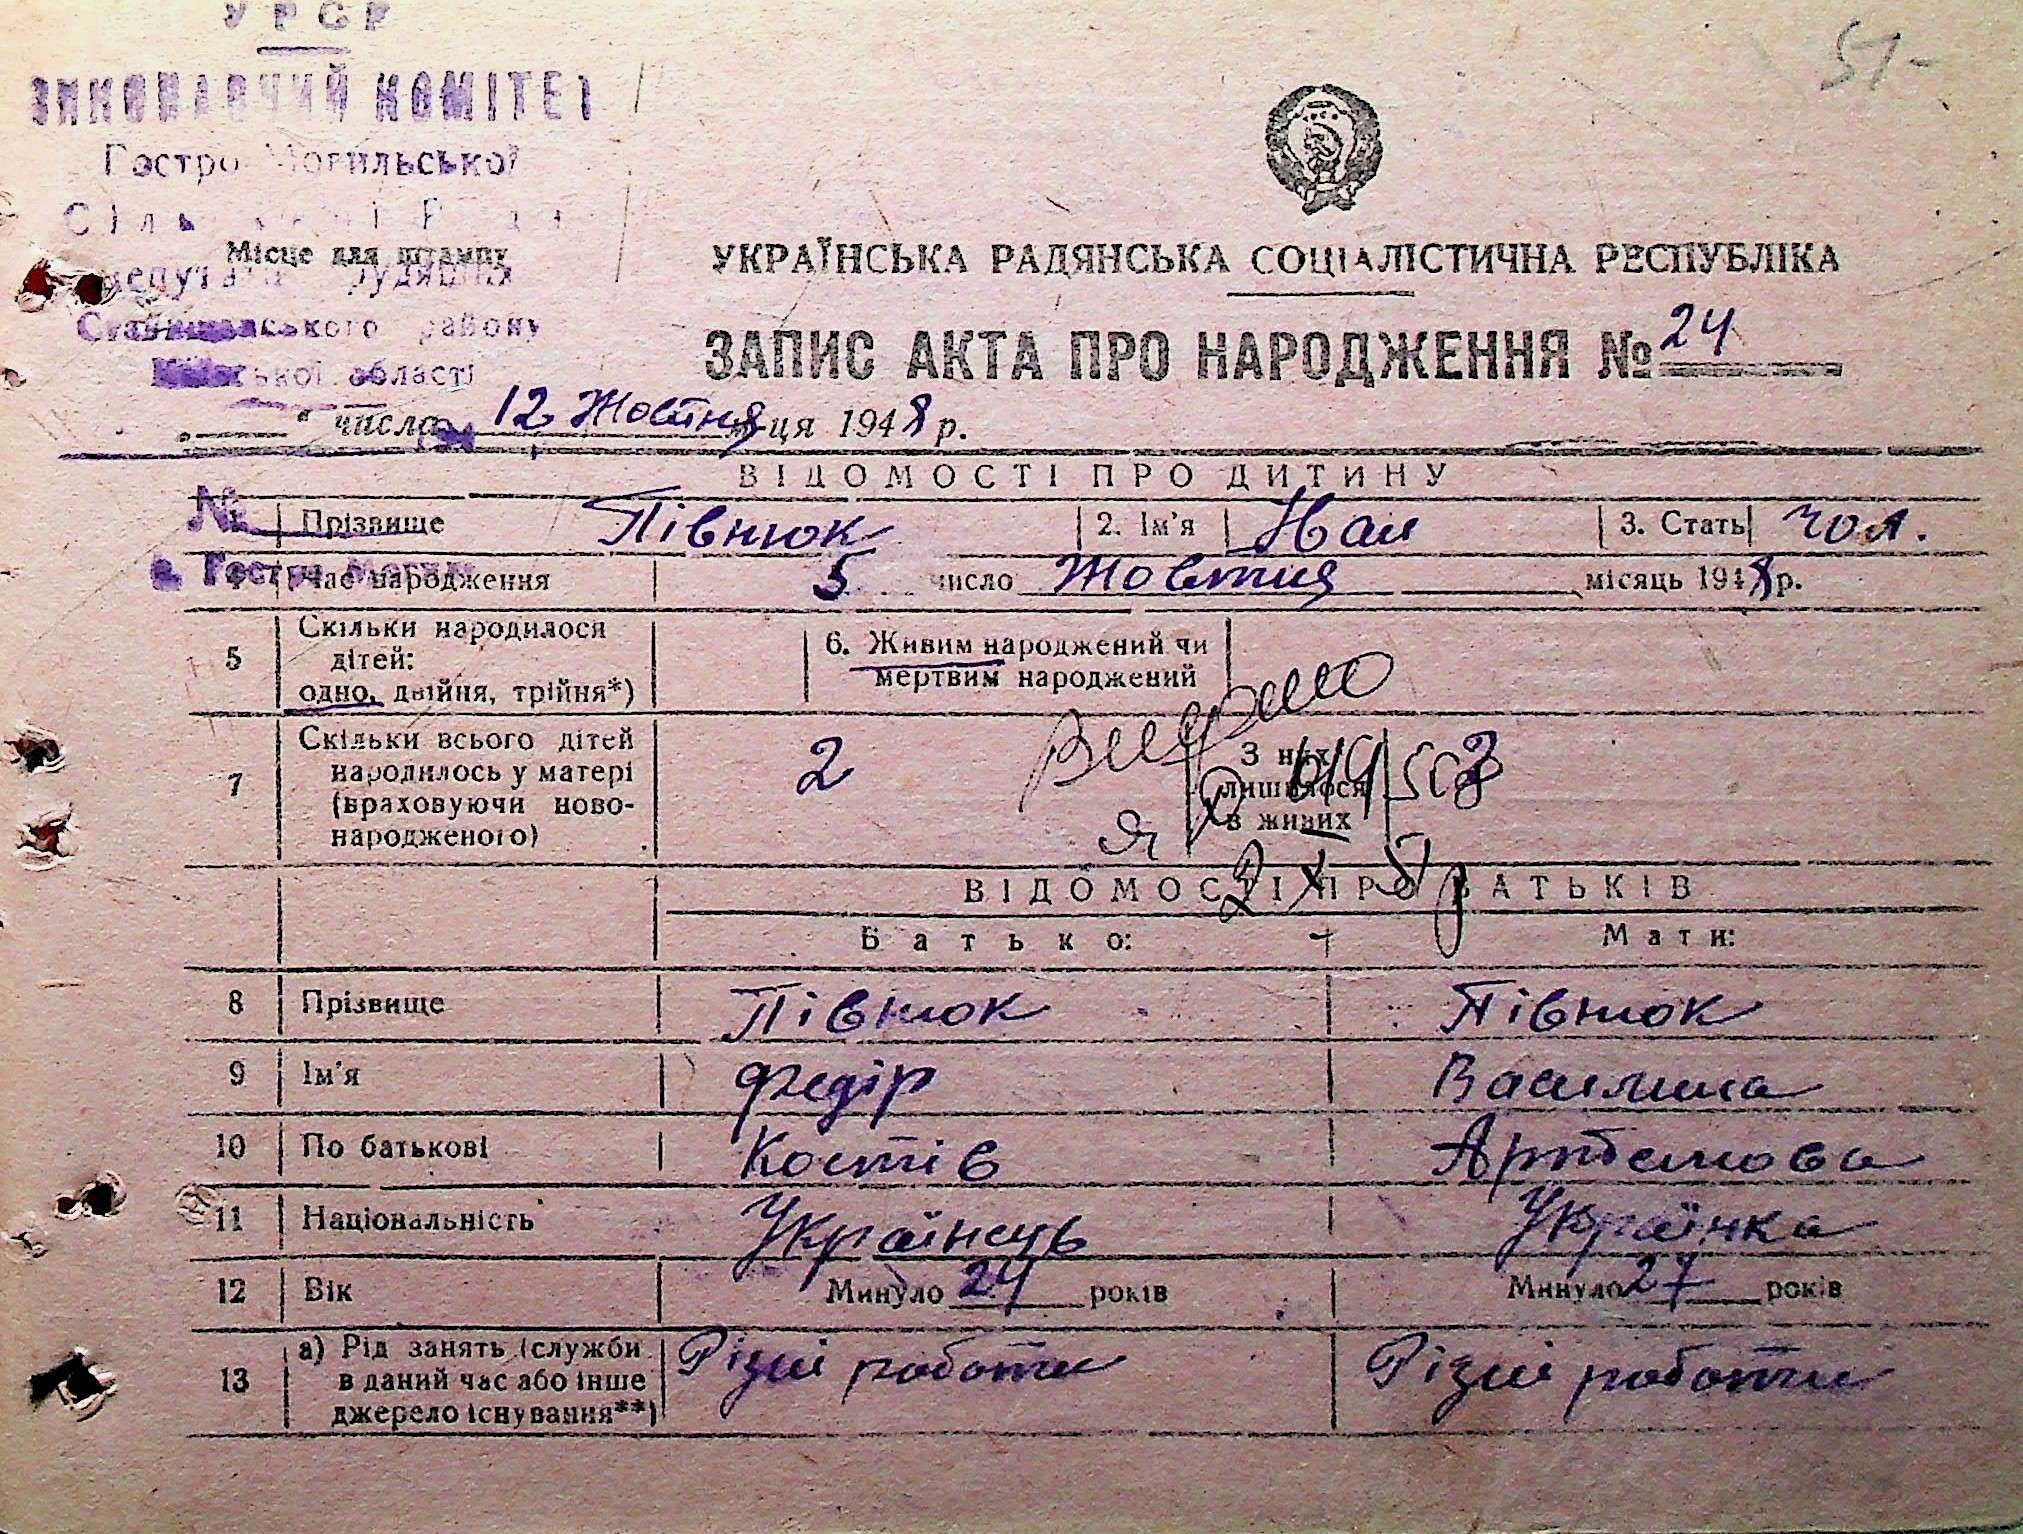 УРСР
ВИКОНАВЧИЙ КОМІТЕТ
Гостро-Могильської
Сільської Ради
депутатів трудящих
Ставищанського району
Київської області
Місце для штампу
51-
УКРАЇНСЬКА РАДЯНСЬКА СОЦІАЛІСТИЧНА РЕСПУБЛІКА
ЗАПИС АКТА ПРО НАРОДЖЕННЯ № 24
„ “ числа 12 Жовтня м-ця 1948 р.
ВІДОМОСТІ ПРО ДИТИНУ
№
1 Прізвище Півнюк 2. Ім'я Іван 3. Стать чол.
с. Гостра Могила
4 Час народження 5 число Жовтня місяць 1948 р.
5 Скільки народилося дітей: одно, двійня, трійня*) 6. Живим народжений чи мертвим народжений
7 Скільки всього дітей народилось у матері (враховуючи новонародженого) 2 З них лишилося в живих 2
Видано
ВІДОМОСТІ ПРО БАТЬКІВ
Батько: Мати:
8 Прізвище Півнюк Півнюк
9 Ім'я Федір Василина
10 По батькові Костів Артемова
11 Національність Українець Українка
12 Вік Минуло 24 років Минуло 27 років
13 а) Рід занять (служби в даний час або інше джерело існування**) Різні роботи Різні роботи